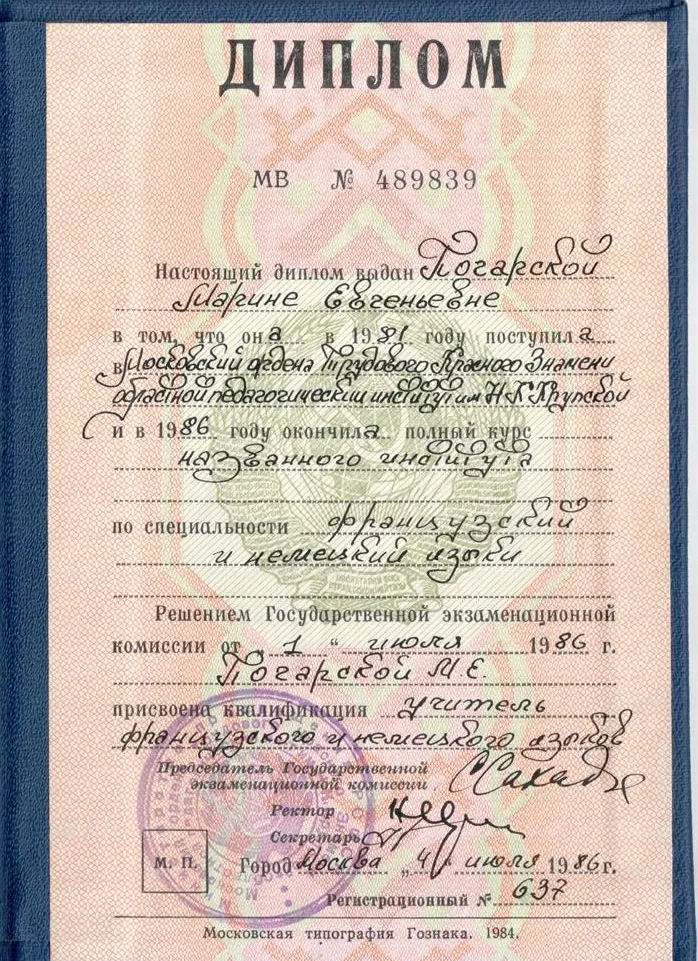 ДИПЛОМ
МВ № 489839
Настоящий диплом выдан Погарской
Марине Евгеньевне
в том, что она в 1981 году поступила
в Московский ордена Трудового Красного Знамени
областной педагогический институт им Н.К.Крупской
и в 1986 году окончила полный курс
названного института
по специальности французский
и немецкий языки
Решением Государственной экзаменационной
комиссии от „ 1 “ июля 1986 г.
Погарской М.Е.
присвоена квалификация учитель
французского и немецкого языков
Председатель Государственной
экзаменационной комиссии
Ректор
Секретарь
М. П. Город Москва „ 4 “ июля 1986г.
Регистрационный № 637
Московская типография Гознака. 1984.